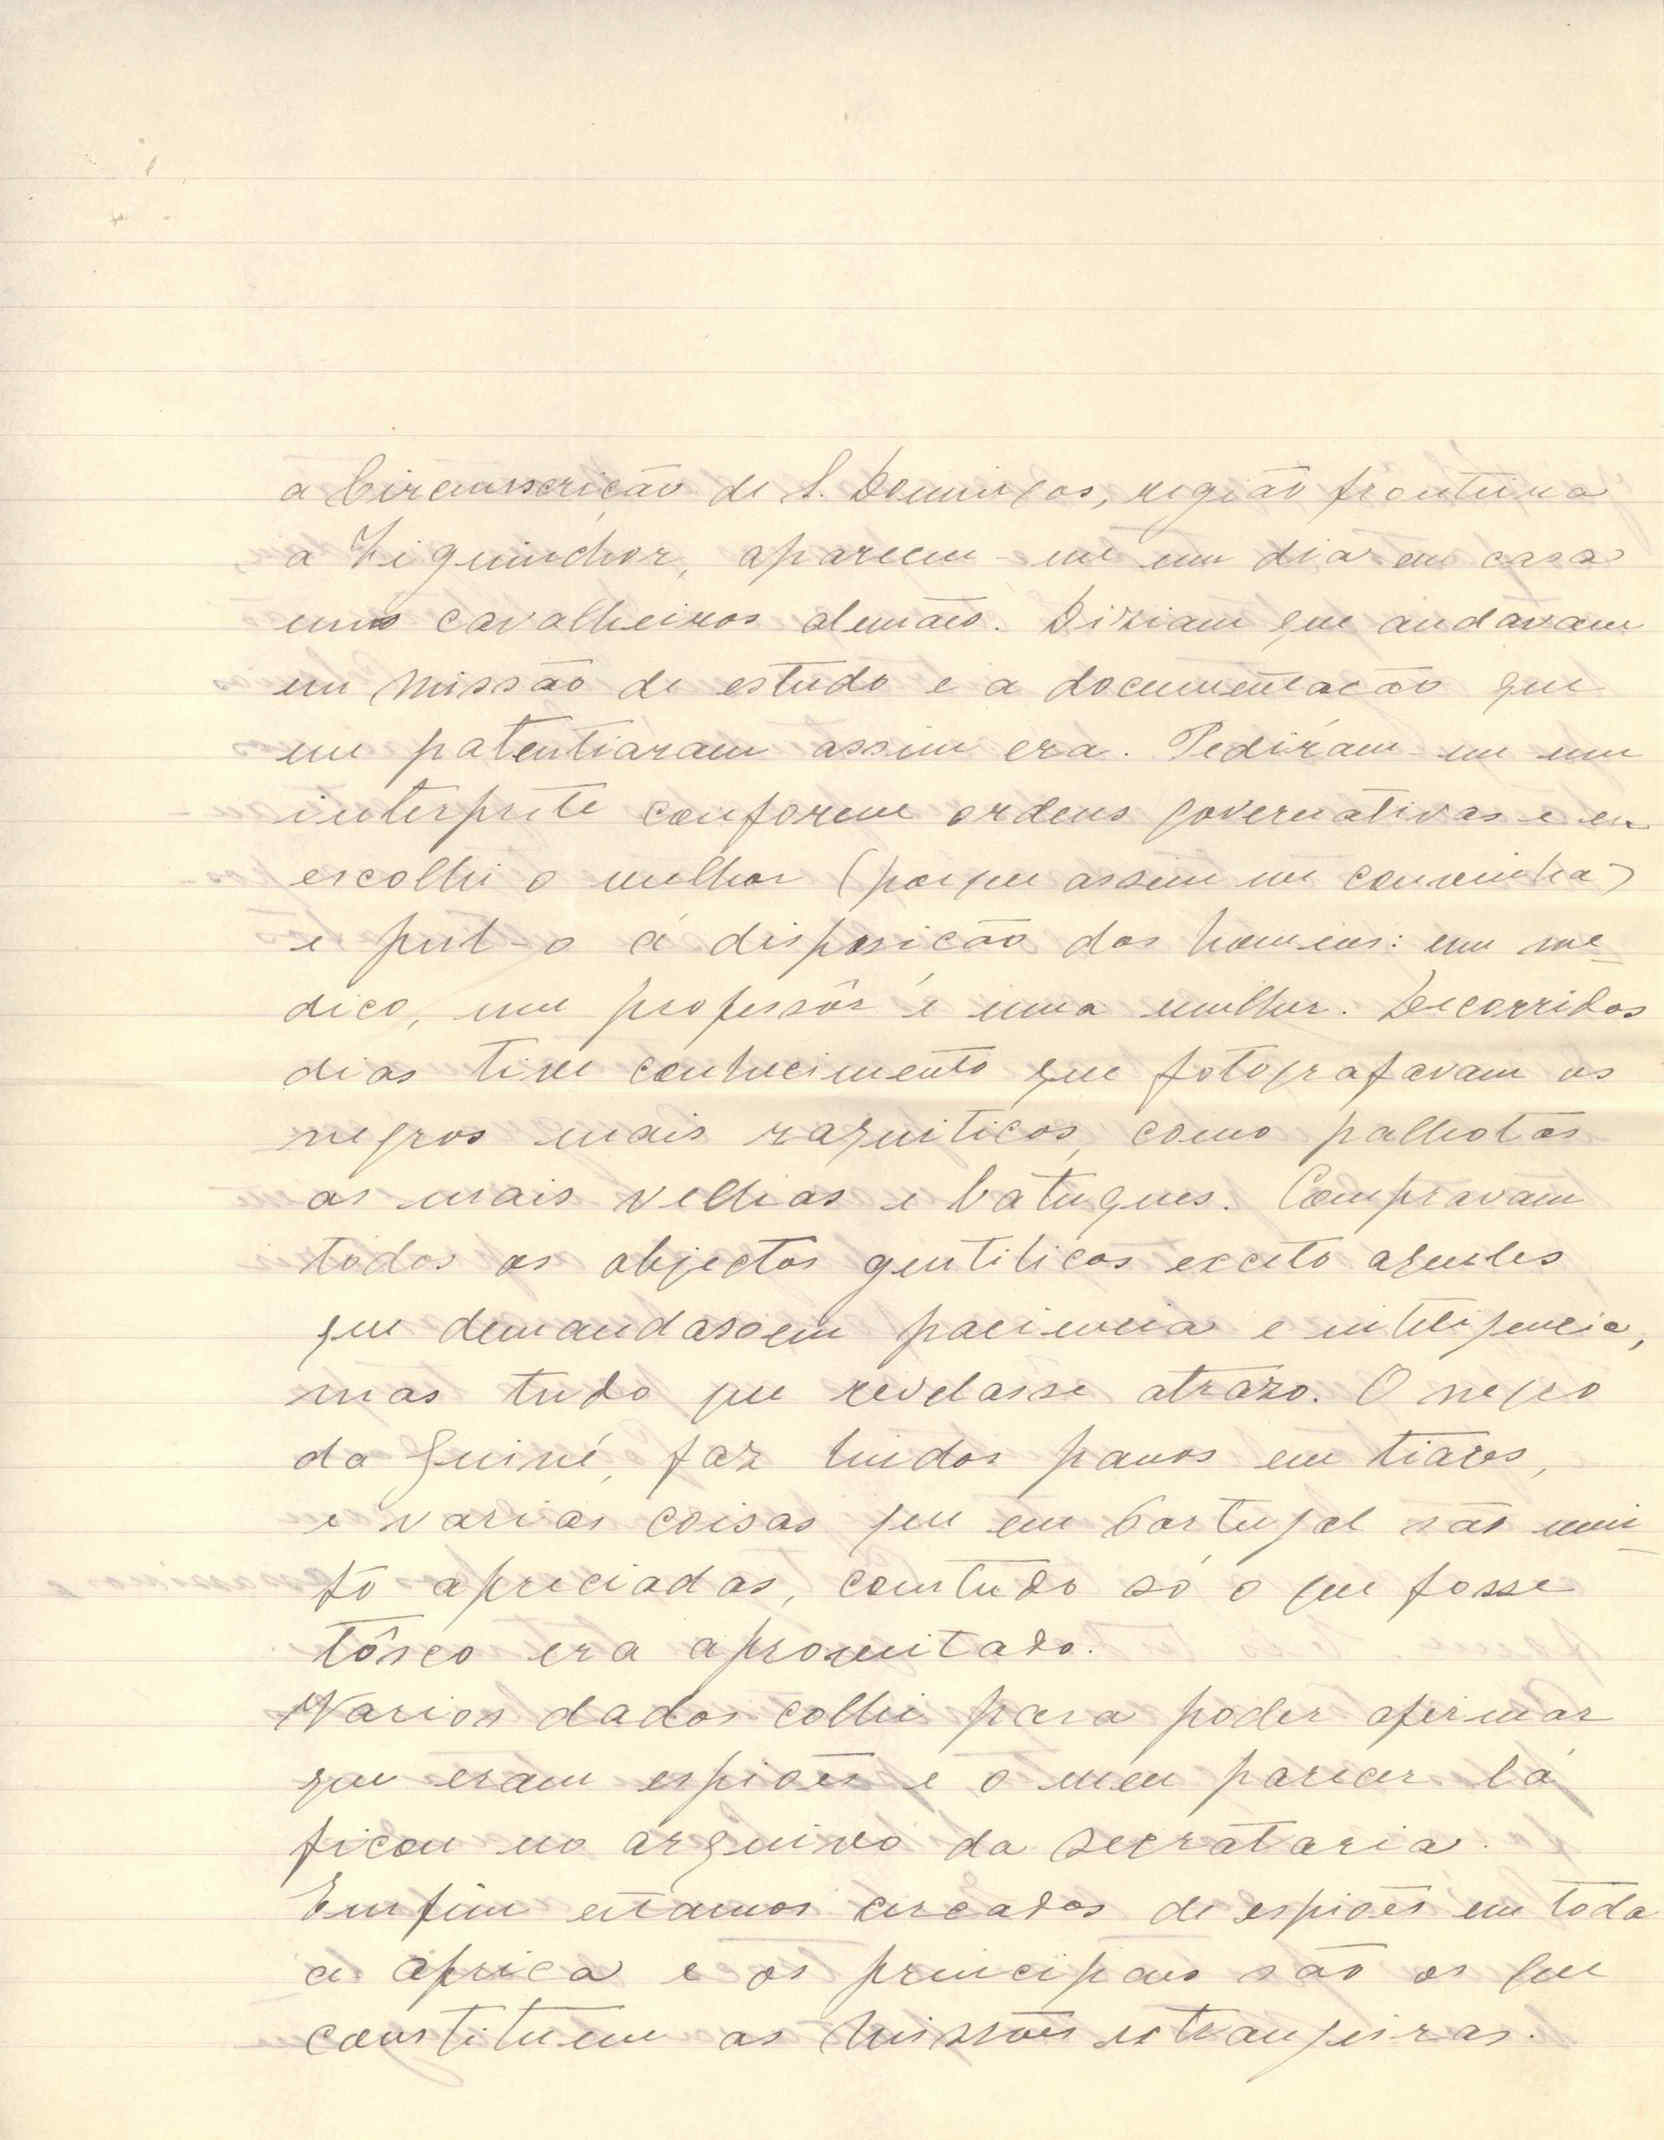 a Circunscrição de S. Domingos, região fronteira
a Ziguinchor, aparecem-me um dia em casa
uns cavalheiros alemães. Diziam que andavam
em missão de estudo e a documentação que
me patentiáram assim era. Pediram-me um
interprete conforme ordens governativas e eu
escolhi o milhor (porque assim me convinha)
e puz-o á disposição dos homens: um me-
dico, um professôr e uma mulher. Decorridos
dias tive conhecimento que fotografavam os
negros mais raquiticos, como palhotas
as mais velhas e batuques. Compravam
todos os objectos gentilicos exceto aqueles
que demandassem paciencia e inteligencia,
mas tudo que revelasse atrazo. O negro
da Guiné, faz lindos panos em tiares,
e varias coisas que em Portugal são mui-
to apreciadas, comtudo só o que fosse
tôsco era aproveitado.
Varios dados colhi para poder afirmar
que eram espiões e o meu parecer lá
ficou no arquivo da secrataria.
Emfim estamos cercados de espiões em toda
a Africa e os principais são os que
constituem as missões estrangeiras.